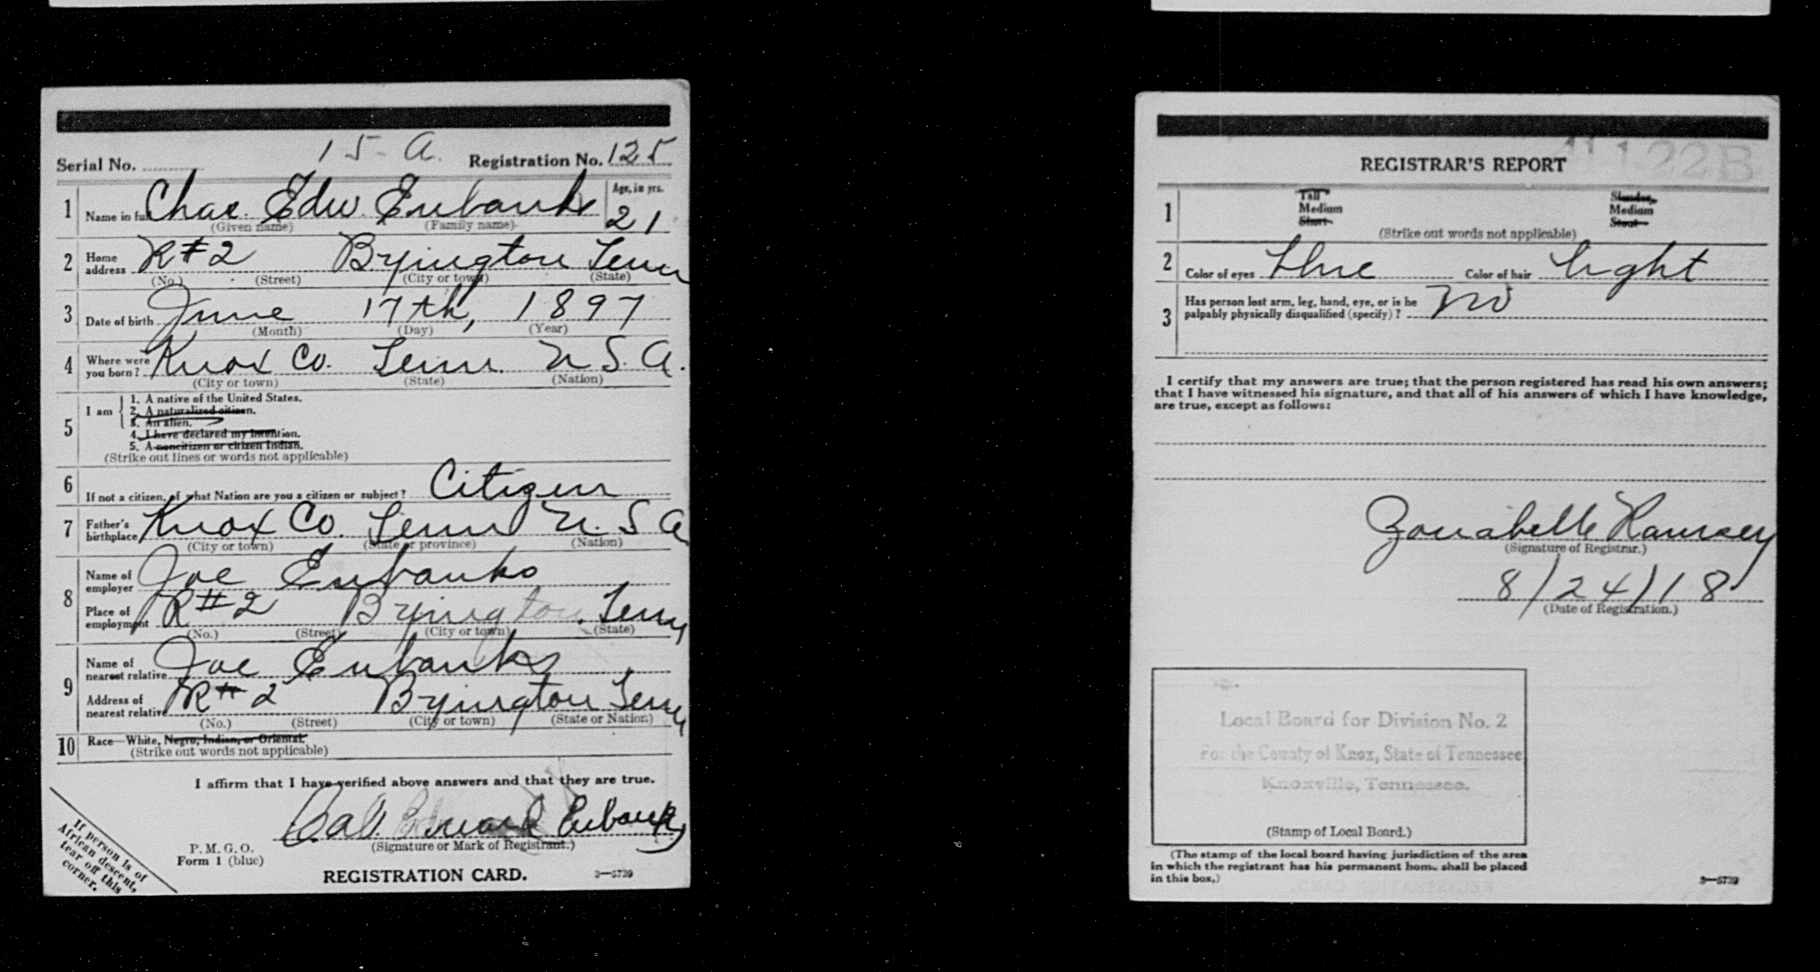 Serial No. 15-A Registration No. 125
1 Name in full Chas. Edw. Eubanks Age, in yrs. 21
(Given name) (Family name)
2 Home address R#2 Byington Tenn
(No.) (Street) (City or town) (State)
3 Date of birth June 17th, 1897
(Month) (Day) (Year)
4 Where were you born? Knox Co. Tenn. U.S.A.
(City or town) (State) (Nation)
5 I am
1. A native of the United States.
2. A naturalized citizen.
3. An alien.
4. I have declared my intention.
5. A noncitizen or citizen Indian.
(Strike out lines or words not applicable)
6 If not a citizen, of what Nation are you a citizen or subject? Citizen
7 Father's birthplace Knox Co. Tenn U.S.A
(City or town) (State or province) (Nation)
8 Name of employer Joe Eubanks
Place of employment R#2 Byington. Tenn
(No.) (Street) (City or town) (State)
9 Name of nearest relative Joe Eubanks
Address of nearest relative R#2 Byington Tenn
(No.) (Street) (City or town) (State or Nation)
10 Race—White, Negro, Indian, or Oriental.
(Strike out words not applicable)
I affirm that I have verified above answers and that they are true.
Edward Eubanks
(Signature or Mark of Registrant.)
P. M. G. O.
Form 1 (blue)
REGISTRATION CARD.
3—5739
If person is of
African descent,
tear off this
corner.
41 122B
REGISTRAR'S REPORT
1 Tall Slender
Medium Medium
Short Stout
(Strike out words not applicable)
2 Color of eyes blue Color of hair light
3 Has person lost arm, leg, hand, eye, or is he
palpably physically disqualified (specify)? no
I certify that my answers are true; that the person registered has read his own answers;
that I have witnessed his signature, and that all of his answers of which I have knowledge,
are true, except as follows:
Zonabelle Ramsey
(Signature of Registrar.)
8/24/18
(Date of Registration.)
Local Board for Division No. 2
For the County of Knox, State of Tennessee
Knoxville, Tennessee.
(Stamp of Local Board.)
(The stamp of the local board having jurisdiction of the area
in which the registrant has his permanent home shall be placed
in this box.)
3—5739